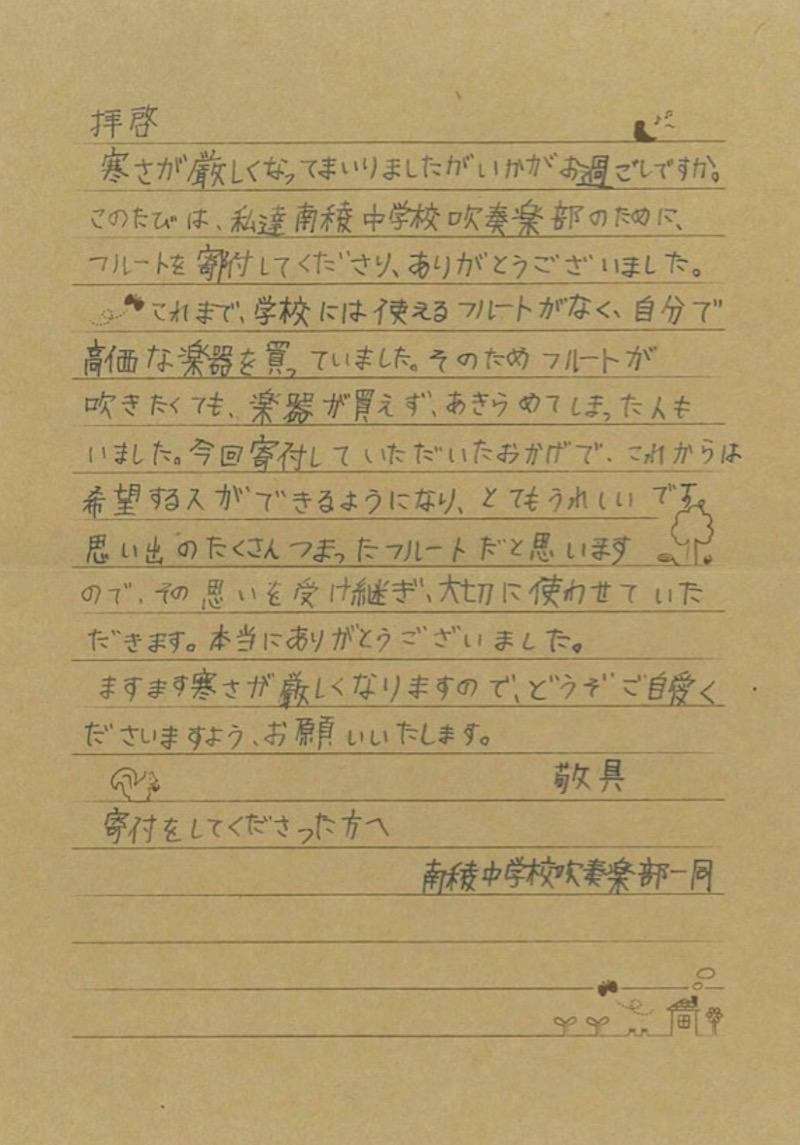 拝啓
寒さが厳しくなってまいりましたがいかがお過ごしですか。
このたびは、私達南稜中学校吹奏楽部のために、
フルートを寄付してくださり、ありがとうございました。
これまで、学校には使えるフルートがなく、自分で
高価な楽器を買っていました。そのためフルートが
吹きたくても、楽器が買えず、あきらめてしまった人も
いました。今回寄付していただいたおかげで、これからは
希望する人ができるようになり、とてもうれしいです。
思い出のたくさんつまったフルートだと思います
ので、その思いを受け継ぎ、大切に使わせていた
だきます。本当にありがとうございました。
ますます寒さが厳しくなりますので、どうぞご自愛く
ださいますよう、お願いいたします。
敬具
寄付をしてくださった方へ
南稜中学校吹奏楽部一同